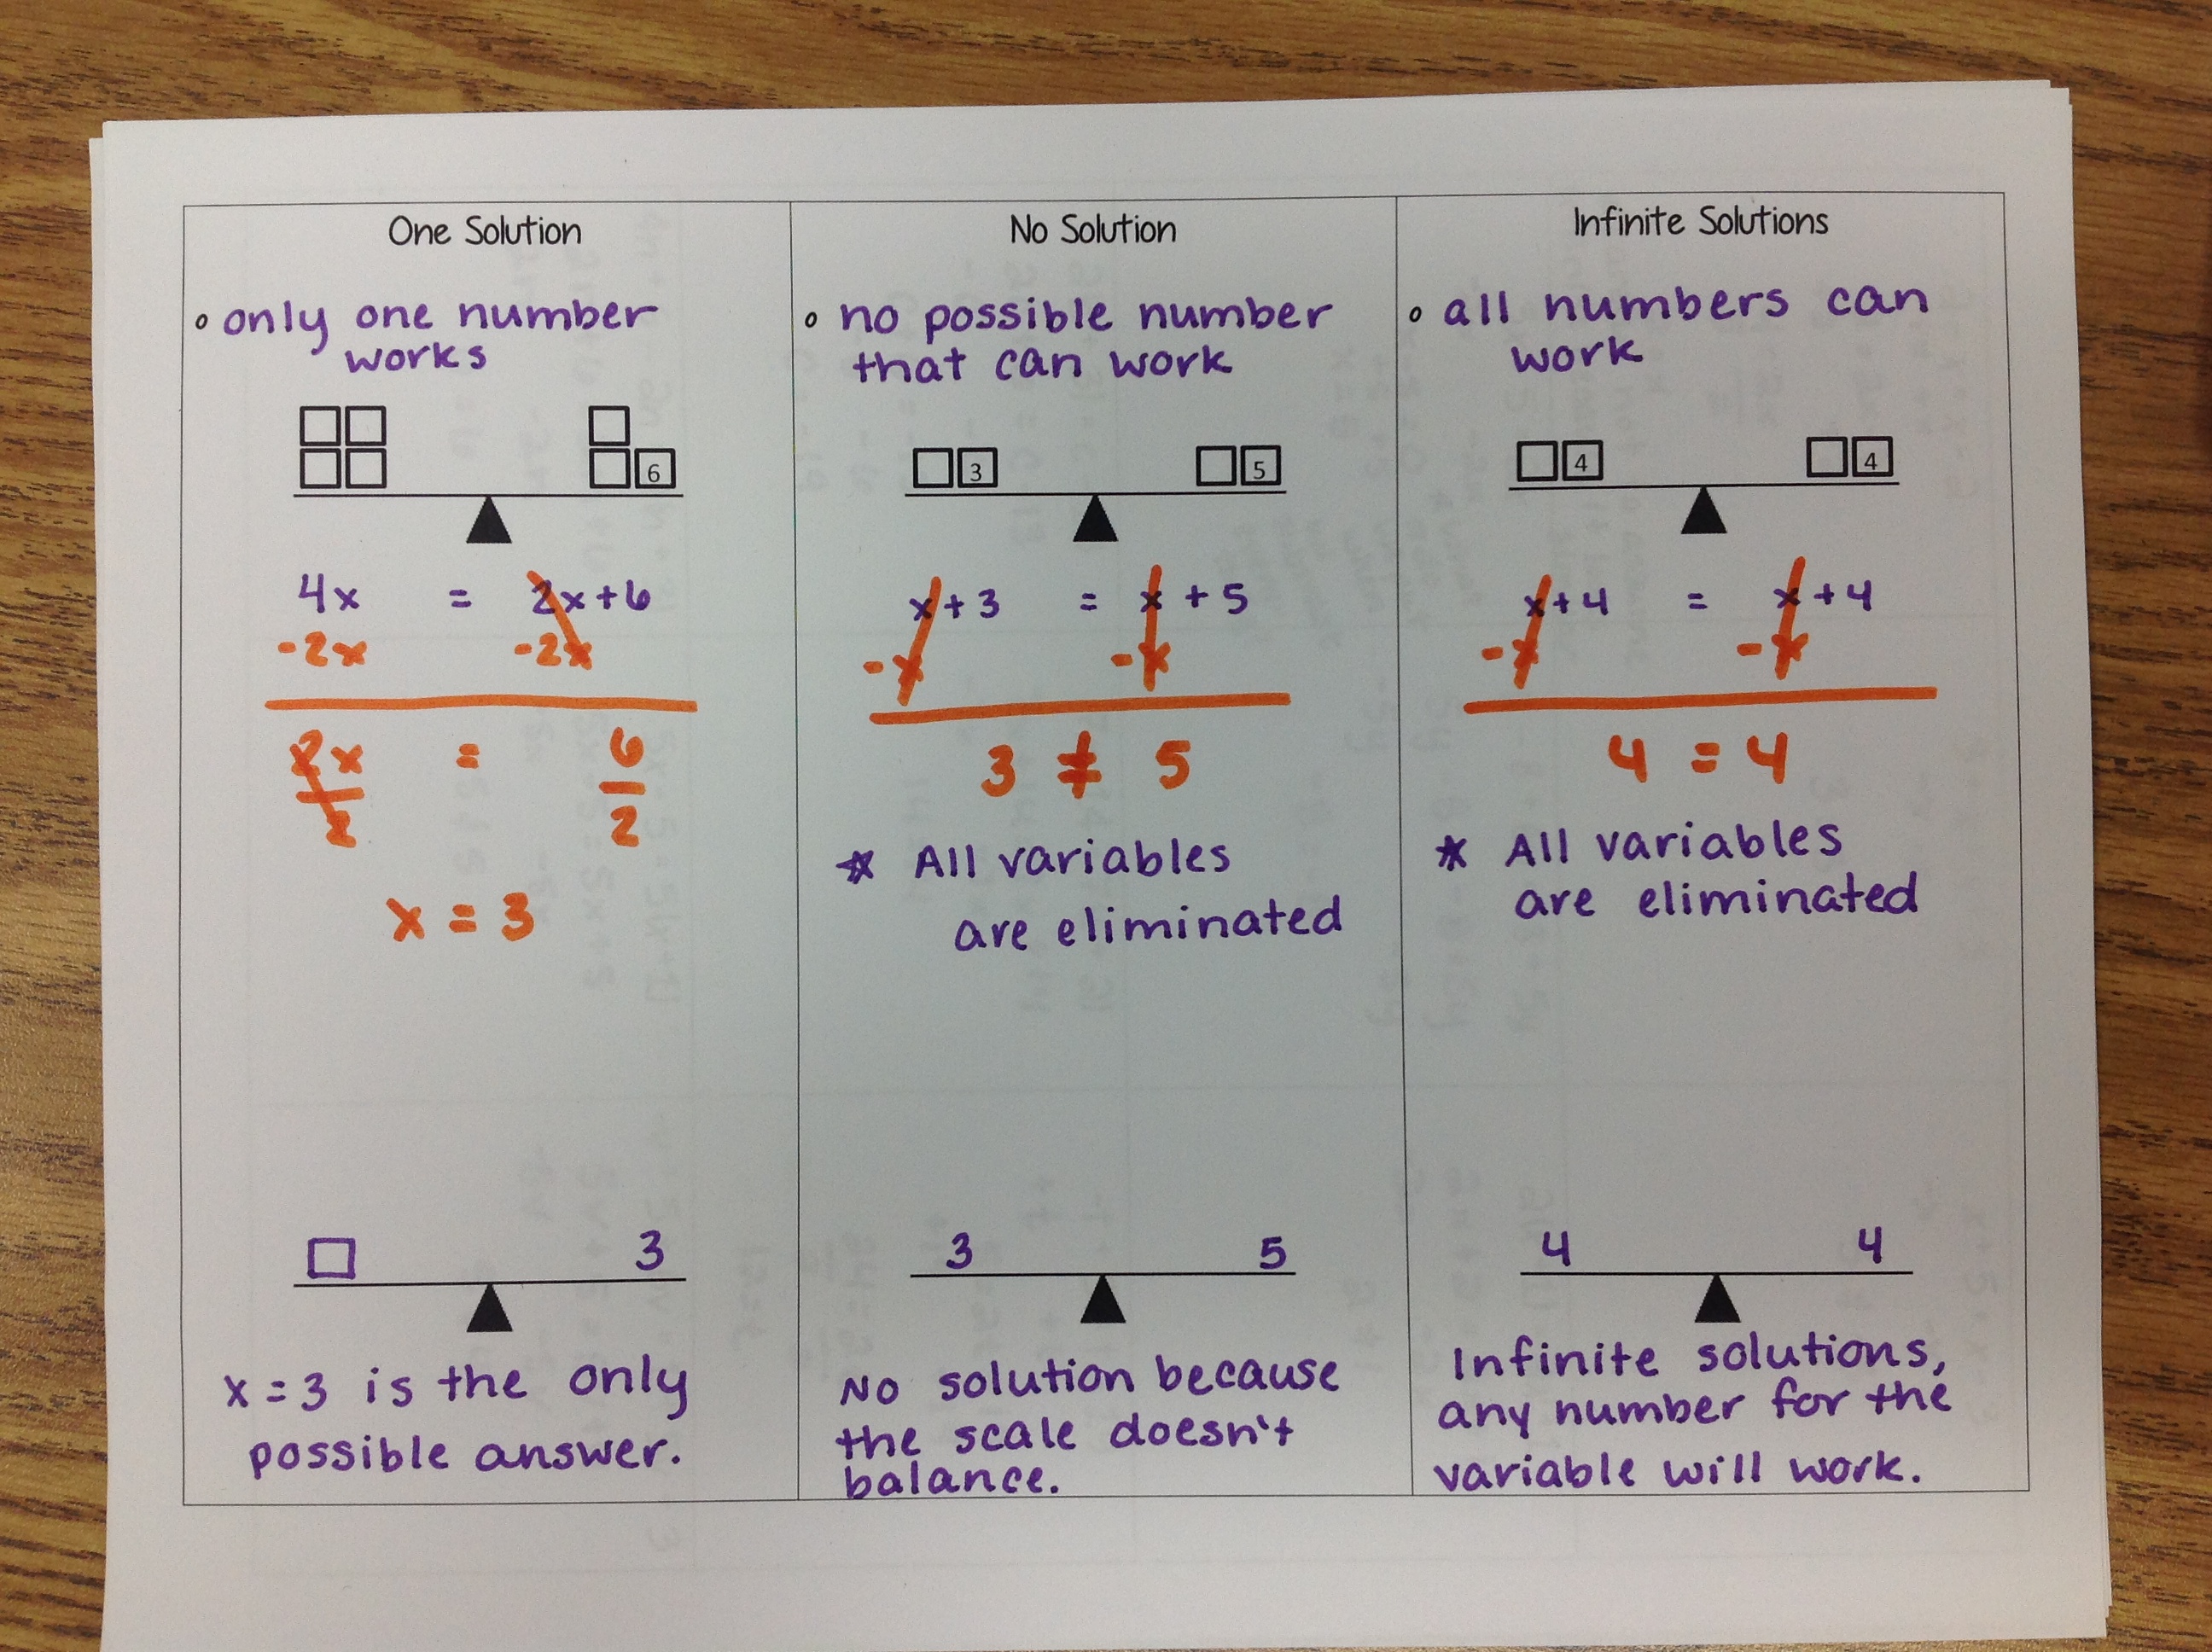 One Solution
◦ only one number
works
6
4x = 2x+6
-2x -2x
2x = 6
2 2
x = 3
3
x = 3 is the only
possible answer.
No Solution
◦ no possible number
that can work
3 5
x + 3 = x + 5
-x -x
3 ≠ 5
* All variables
are eliminated
3 5
No solution because
the scale doesn't
balance.
Infinite Solutions
◦ all numbers can
work
4 4
x + 4 = x + 4
-x -x
4 = 4
* All variables
are eliminated
4 4
Infinite solutions,
any number for the
variable will work.